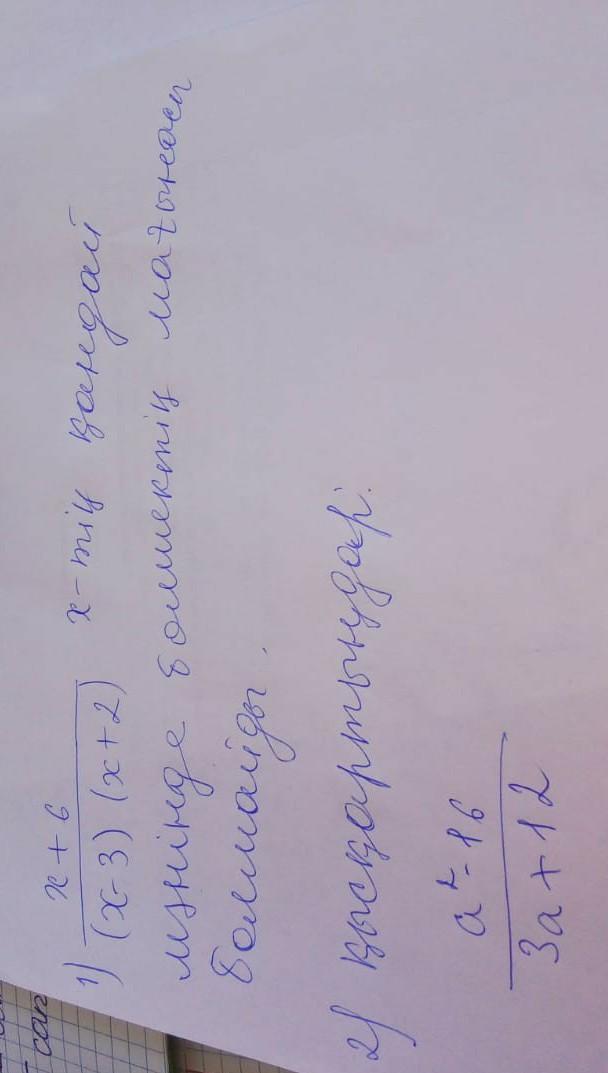 1) x + 6 / (x-3) (x+2) x-тің қандай
мәнінде бөлшектің мағынасы
болмайды.
2) қысқартыңдар:
a² - 16 / 3a + 12